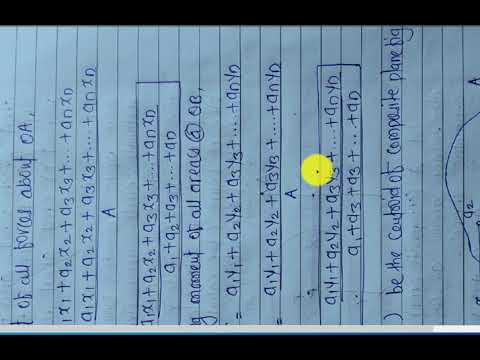 t of all forces about OA,
1x1 + a2x2 + a3x3 + .... + anxn
a1x1 + a2x2 + a3x3 + .... + anxn
A
a1x1 + a2x2 + a3x3 + .... + anxn
a1 + a2 + a3 + .... + an
ng moment of all areas @ OB,
= a1y1 + a2y2 + a3y3 + .... + anyn
= a1y1 + a2y2 + a3y3 + .... + anyn
A
a1y1 + a2y2 + a3y3 + .... + anyn
a1 + a2 + a3 + ... + an
) be the centroid of composite plane fig
A
a2